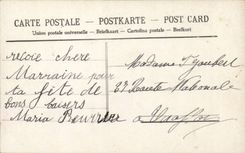 CARTE POSTALE - POSTKARTE - POST CARD
Union postale universelle - Briefkaart - Cartolina postale - Brefkort
recoie chere
Marraine pour
ta fête de
bons baisers
Maria
Madame Joubert
23 Route Nationale
a